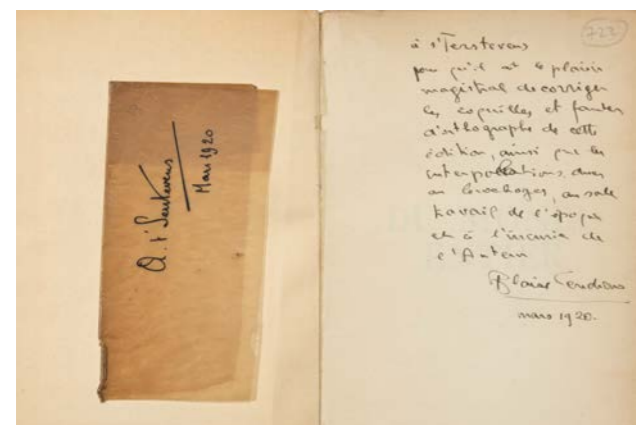 A. t'Serstevens
Mars 1920
723
à t'Serstevens
pour qu'il ait le plaisir
magistral de corriger
les coquilles et fautes
d'orthographe de cette
édition, ainsi que les
interpollations, dues
au, au sale
travail de l'époque
et à l'incurie de
l'Auteur
Blaise Cendrars
mars 1920.